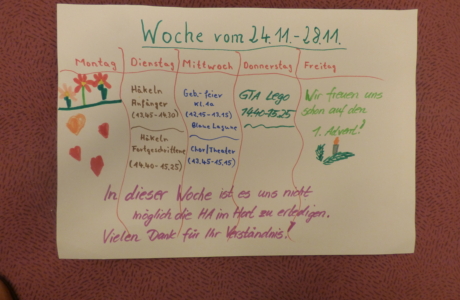 Woche vom 24.11.-28.11.
Montag Dienstag Mittwoch Donnerstag Freitag
Häkeln
Anfänger
(13.45-14.30)
Häkeln
Fortgeschrittene
(14.40-15.25)
Geb.-feier
Kl. 1a
(12.15-13.15)
Blaue Lagune
Chor/Theater
(13.45-15.15)
GTA Lego
14.40-15.25
Wir freuen uns
schon auf den
1. Advent!
In dieser Woche ist es uns nicht
möglich die HA im Hort zu erledigen.
Vielen Dank für Ihr Verständnis!